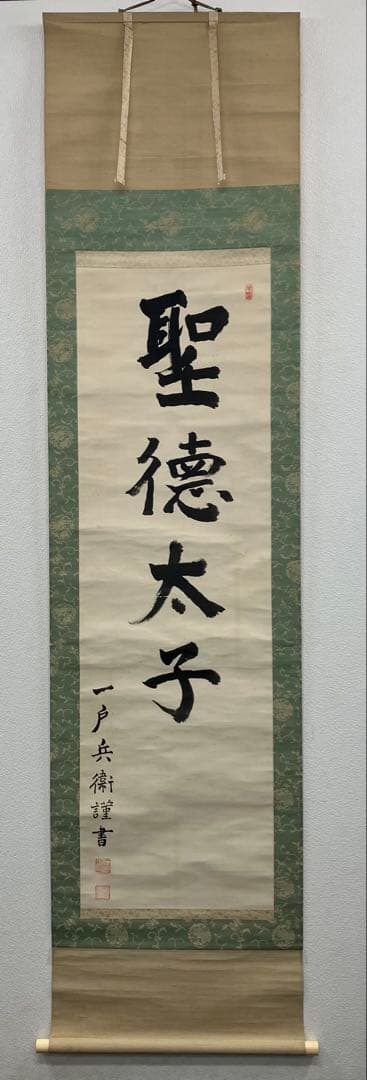 聖德太子
一戶兵衞謹書